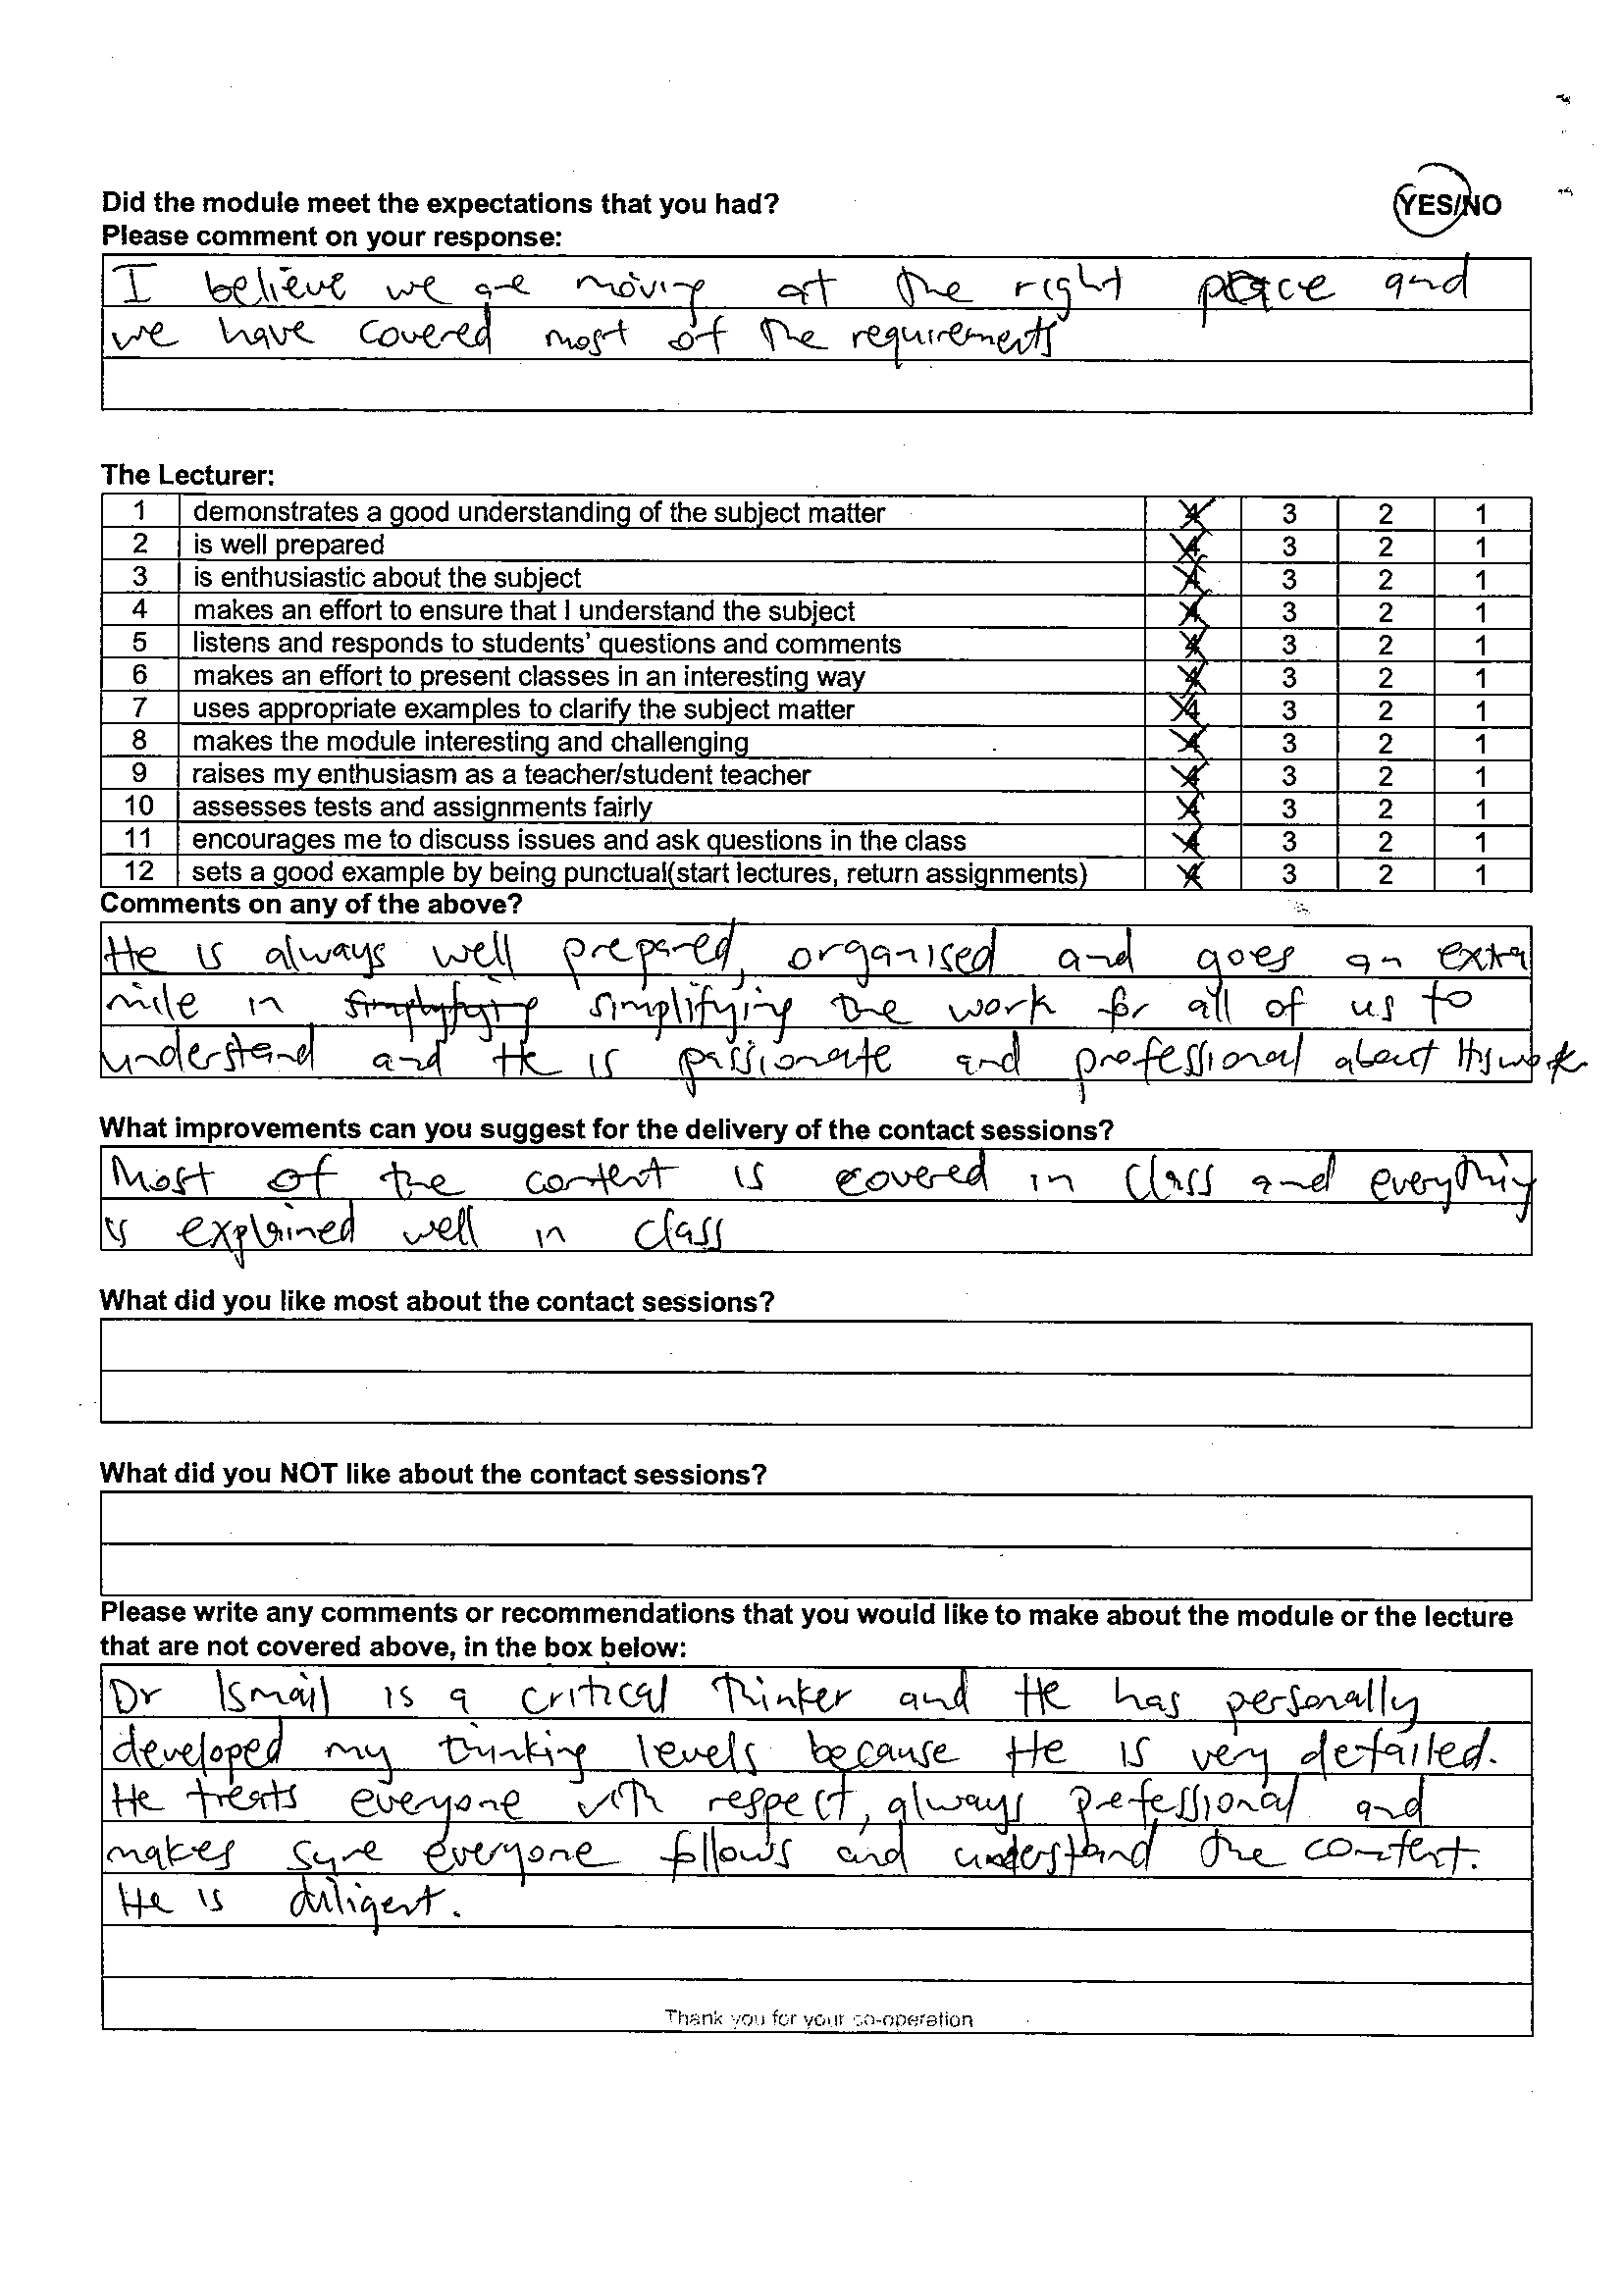 Did the module meet the expectations that you had? YES/NO
Please comment on your response:
I believe we are moving at the right pace and
we have covered most of the requirements
The Lecturer:
1 demonstrates a good understanding of the subject matter 4 3 2 1
2 is well prepared 4 3 2 1
3 is enthusiastic about the subject 4 3 2 1
4 makes an effort to ensure that I understand the subject 4 3 2 1
5 listens and responds to students' questions and comments 4 3 2 1
6 makes an effort to present classes in an interesting way 4 3 2 1
7 uses appropriate examples to clarify the subject matter 4 3 2 1
8 makes the module interesting and challenging 4 3 2 1
9 raises my enthusiasm as a teacher/student teacher 4 3 2 1
10 assesses tests and assignments fairly 4 3 2 1
11 encourages me to discuss issues and ask questions in the class 4 3 2 1
12 sets a good example by being punctual(start lectures, return assignments) 4 3 2 1
Comments on any of the above?
He is always well prepared, organised and goes an extra
mile in simplifying the work for all of us to
understand and He is passionate and professional about His work
What improvements can you suggest for the delivery of the contact sessions?
Most of the content is covered in class and everything
is explained well in class
What did you like most about the contact sessions?
What did you NOT like about the contact sessions?
Please write any comments or recommendations that you would like to make about the module or the lecture
that are not covered above, in the box below:
Dr Ismail is a critical thinker and He has personally
developed my thinking levels because He is very detailed.
He treats everyone with respect, always professional and
makes sure everyone follows and understand the content.
He is diligent.
Thank you for your co-operation